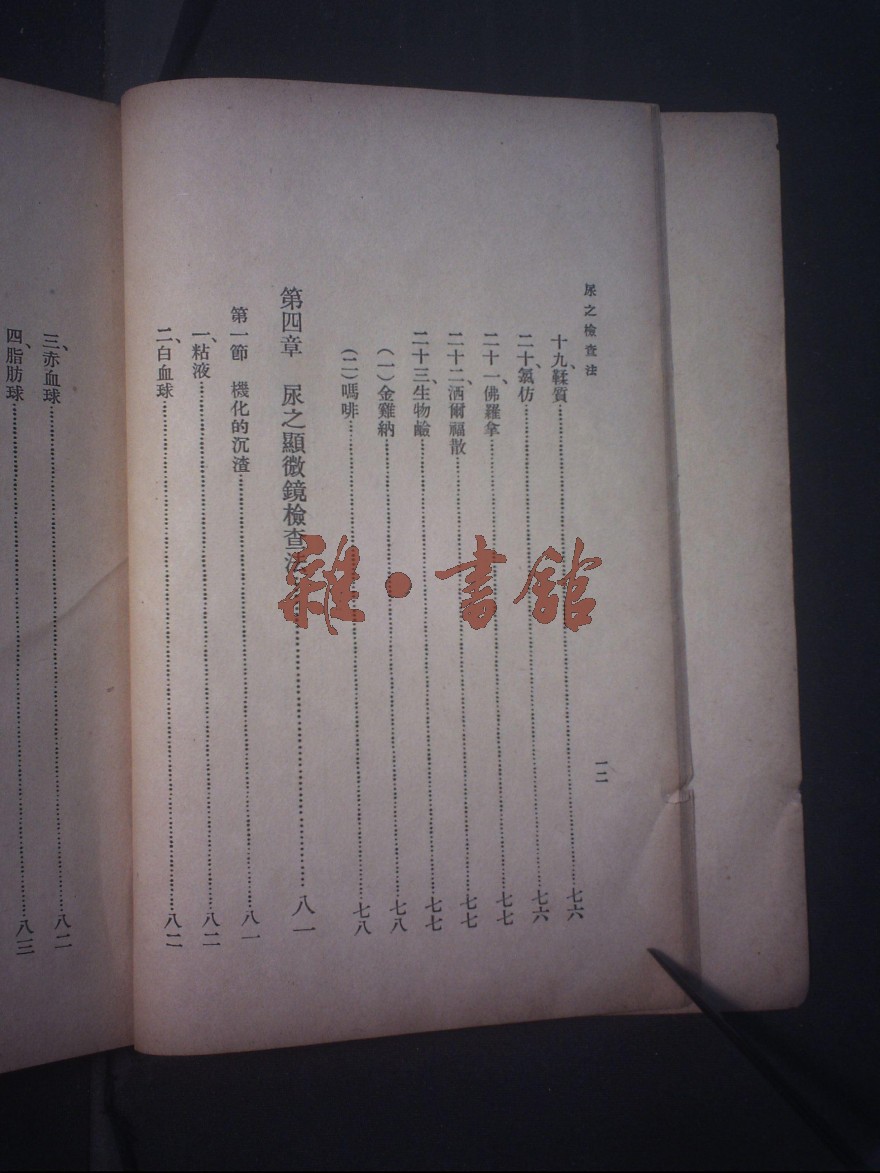 尿之檢查法
一二
十九、鞣質……七六
二十、氯仿……七六
二十一、佛羅拿……七七
二十二、洒爾福散……七七
二十三、生物鹼……七七
(一)金雞納……七八
(二)嗎啡……七八
第四章 尿之顯微鏡檢查法……八一
第一節 機化的沉渣……八一
一、粘液……八二
二、白血球……八二
三、赤血球……八二
四、脂肪球……八三
雜·書館